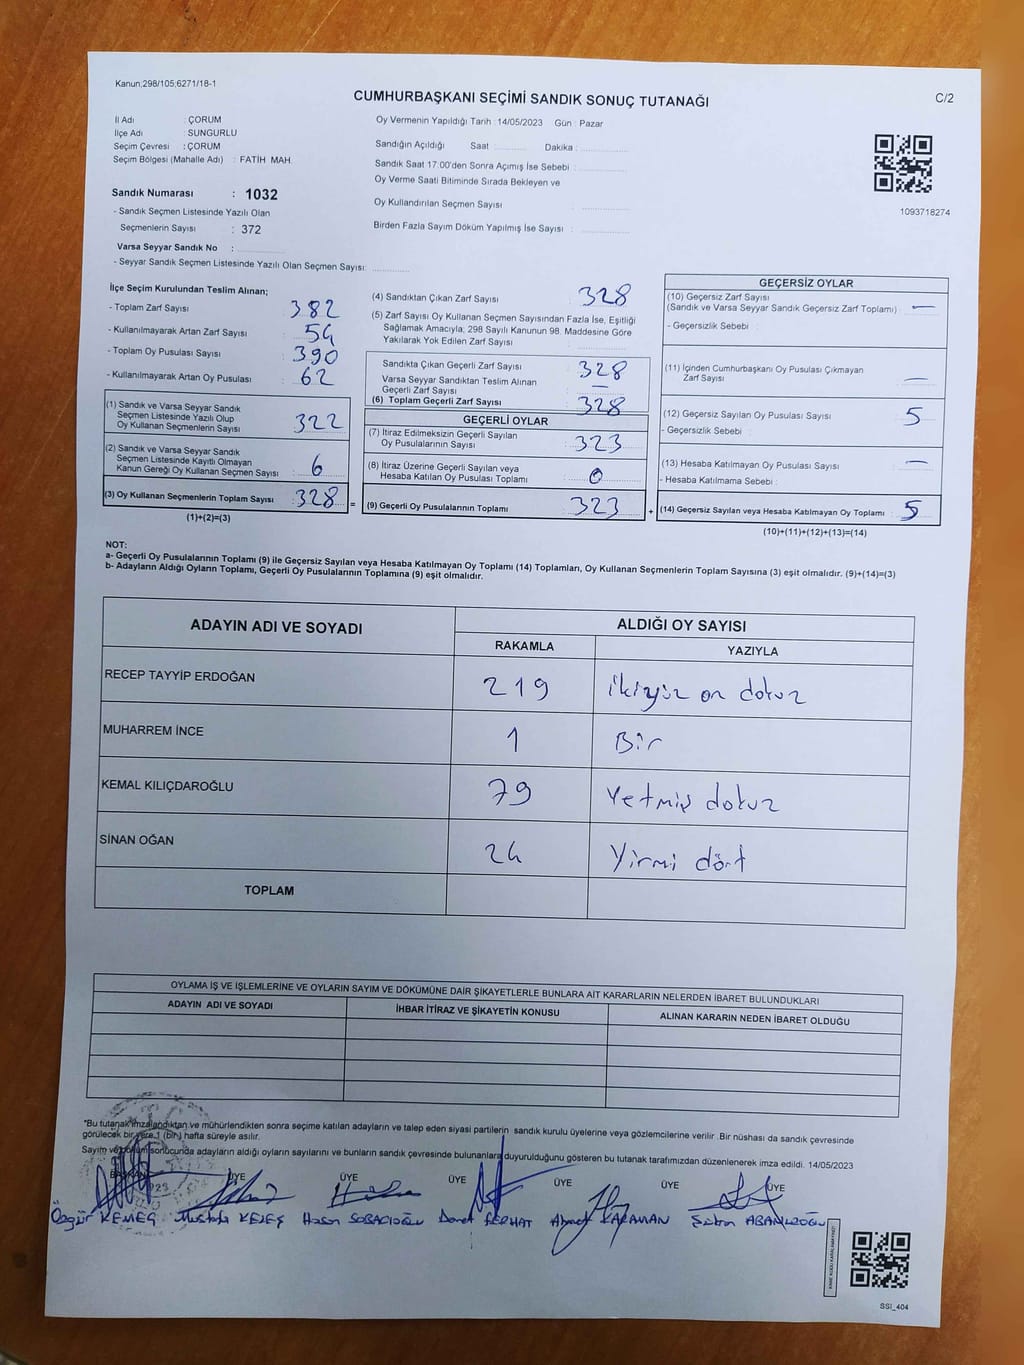 Kanun;298/105;6271/18-1
C/2
CUMHURBAŞKANI SEÇİMİ SANDIK SONUÇ TUTANAĞI
İl Adı : ÇORUM
İlçe Adı : SUNGURLU
Seçim Çevresi : ÇORUM
Seçim Bölgesi (Mahalle Adı) : FATİH MAH.
Sandık Numarası : 1032
- Sandık Seçmen Listesinde Yazılı Olan
Seçmenlerin Sayısı : 372
Varsa Seyyar Sandık No :
- Seyyar Sandık Seçmen Listesinde Yazılı Olan Seçmen Sayısı:
Oy Vermenin Yapıldığı Tarih : 14/05/2023 Gün : Pazar
Sandığın Açıldığı Saat : Dakika :
Sandık Saat 17:00'den Sonra Açımış İse Sebebi :
Oy Verme Saati Bitiminde Sırada Bekleyen ve
Oy Kullandırılan Seçmen Sayısı :
Birden Fazla Sayım Döküm Yapılmış İse Sayısı :
1093718274
İlçe Seçim Kurulundan Teslim Alınan;
- Toplam Zarf Sayısı : 382
- Kullanılmayarak Artan Zarf Sayısı : 54
- Toplam Oy Pusulası Sayısı : 390
- Kullanılmayarak Artan Oy Pusulası : 62
(1) Sandık ve Varsa Seyyar Sandık
Seçmen Listesinde Yazılı Olup
Oy Kullanan Seçmenlerin Sayısı : 322
(2) Sandık ve Varsa Seyyar Sandık
Seçmen Listesinde Kayıtlı Olmayan
Kanun Gereği Oy Kullanan Seçmen Sayısı : 6
(3) Oy Kullanan Seçmenlerin Toplam Sayısı : 328 =
(1)+(2)=(3)
(4) Sandıktan Çıkan Zarf Sayısı : 328
(5) Zarf Sayısı Oy Kullanan Seçmen Sayısından Fazla İse, Eşitliği
Sağlamak Amacıyla; 298 Sayılı Kanunun 98. Maddesine Göre
Yakılarak Yok Edilen Zarf Sayısı :
Sandıkta Çıkan Geçerli Zarf Sayısı : 328
Varsa Seyyar Sandıktan Teslim Alınan
Geçerli Zarf Sayısı : —
(6) Toplam Geçerli Zarf Sayısı : 328
GEÇERLİ OYLAR
(7) İtiraz Edilmeksizin Geçerli Sayılan
Oy Pusulalarının Sayısı : 323
(8) İtiraz Üzerine Geçerli Sayılan veya
Hesaba Katılan Oy Pusulası Toplamı : 0
(9) Geçerli Oy Pusulalarının Toplamı : 323 +
GEÇERSİZ OYLAR
(10) Geçersiz Zarf Sayısı
(Sandık ve Varsa Seyyar Sandık Geçersiz Zarf Toplamı) : —
- Geçersizlik Sebebi :
(11) İçinden Cumhurbaşkanı Oy Pusulası Çıkmayan
Zarf Sayısı : —
(12) Geçersiz Sayılan Oy Pusulası Sayısı : 5
- Geçersizlik Sebebi :
(13) Hesaba Katılmayan Oy Pusulası Sayısı : —
- Hesaba Katılmama Sebebi :
(14) Geçersiz Sayılan veya Hesaba Katılmayan Oy Toplamı : 5
(10)+(11)+(12)+(13)=(14)
NOT:
a- Geçerli Oy Pusulalarının Toplamı (9) ile Geçersiz Sayılan veya Hesaba Katılmayan Oy Toplamı (14) Toplamları, Oy Kullanan Seçmenlerin Toplam Sayısına (3) eşit olmalıdır. (9)+(14)=(3)
b- Adayların Aldığı Oyların Toplamı, Geçerli Oy Pusulalarının Toplamına (9) eşit olmalıdır.
ADAYIN ADI VE SOYADI ALDIĞI OY SAYISI
RAKAMLA YAZIYLA
RECEP TAYYİP ERDOĞAN 219 ikiyüz on dokuz
MUHARREM İNCE 1 Bir
KEMAL KILIÇDAROĞLU 79 Yetmiş dokuz
SİNAN OĞAN 24 Yirmi dört
TOPLAM
OYLAMA İŞ VE İŞLEMLERİNE VE OYLARIN SAYIM VE DÖKÜMÜNE DAİR ŞİKAYETLERLE BUNLARA AİT KARARLARIN NELERDEN İBARET BULUNDUKLARI
ADAYIN ADI VE SOYADI İHBAR İTİRAZ VE ŞİKAYETİN KONUSU ALINAN KARARIN NEDEN İBARET OLDUĞU
*Bu tutanak imzalandıktan ve mühürlendikten sonra seçime katılan adayların ve talep eden siyasi partilerin sandık kurulu üyelerine veya gözlemcilerine verilir .Bir nüshası da sandık çevresinde
görülecek bir yere 1 (bir) hafta süreyle asılır.
Sayım ve döküm sonucunda adayların aldığı oyların sayılarını ve bunların sandık çevresinde bulunanlara duyurulduğunu gösteren bu tutanak tarafımızdan düzenlenerek imza edildi. 14/05/2023
BAŞKAN ÜYE ÜYE ÜYE ÜYE ÜYE ÜYE
Özgür KEMEÇ Mustafa KELEŞ Hasan SOBACIOĞLU FERHAT Ahmet KARAMAN Şükrü
SSI_404